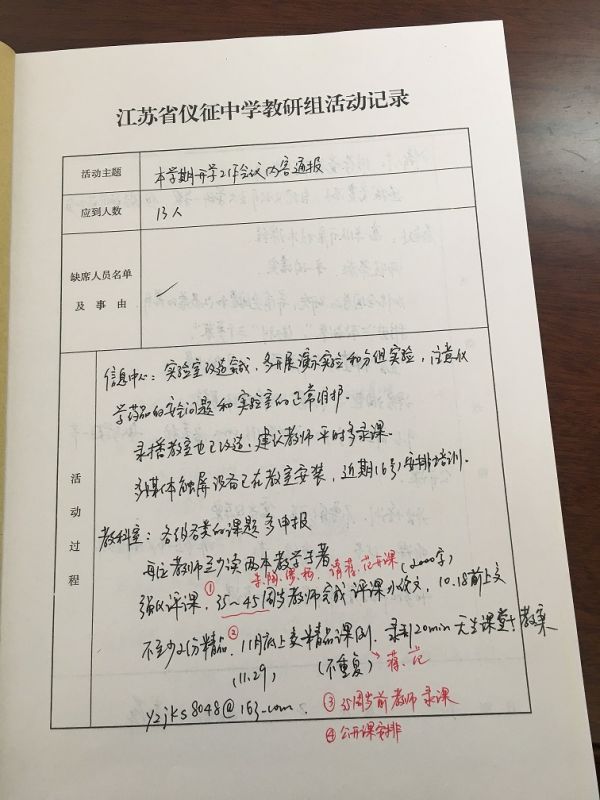 江苏省仪征中学教研组活动记录
活动主题
本学期开学工作会议内容通报
应到人数
13人
缺席人员名单
及事由
活动过程
信息中心：实验室改造完成，多开展演示实验和分组实验，注意化
学药品的安全问题和实验室的正常维护.
录播教室也已改造，建议教师平时多录课.
多媒体触屏设备已在教室安装，近期(6号)安排培训.
教科室：各级各类的课题多申报
每位教师至少读两本教学专著
请蒋、范开课 (2000字)
强化评课，①35~45周岁教师完成评课小论文，10.18前上交
不至少2份精品.②11月底上交精品课例，录制20min无生课堂+教案
(11.29) (不重复) 蒋、范
yzjks8048@163.com.
③35周岁前教师录课
④公开课安排